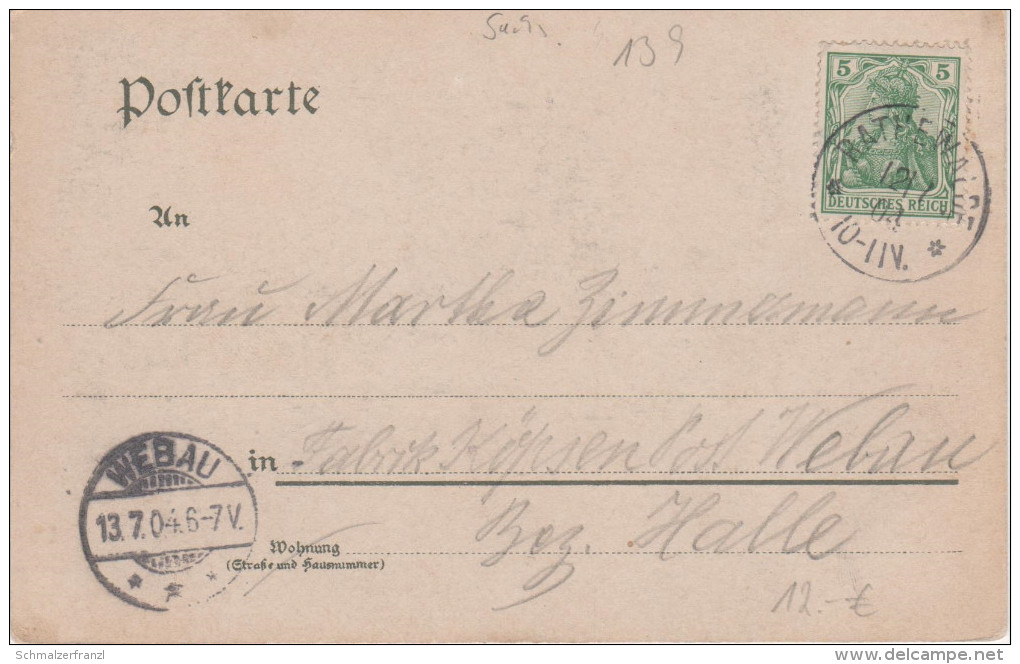 Sa. 9.
139
Postkarte
5 5
DEUTSCHES REICH
RATHEWALDE
12/7
04
10-11V.
An
Frau Martha Zimmermann
in Fabrik Köpsen Post Webau
Bez. Halle
WEBAU
13.7.04.6-7V.
Wohnung
(Straße und Hausnummer)
12.-€
Schmalzerfranzl
delcampe.net